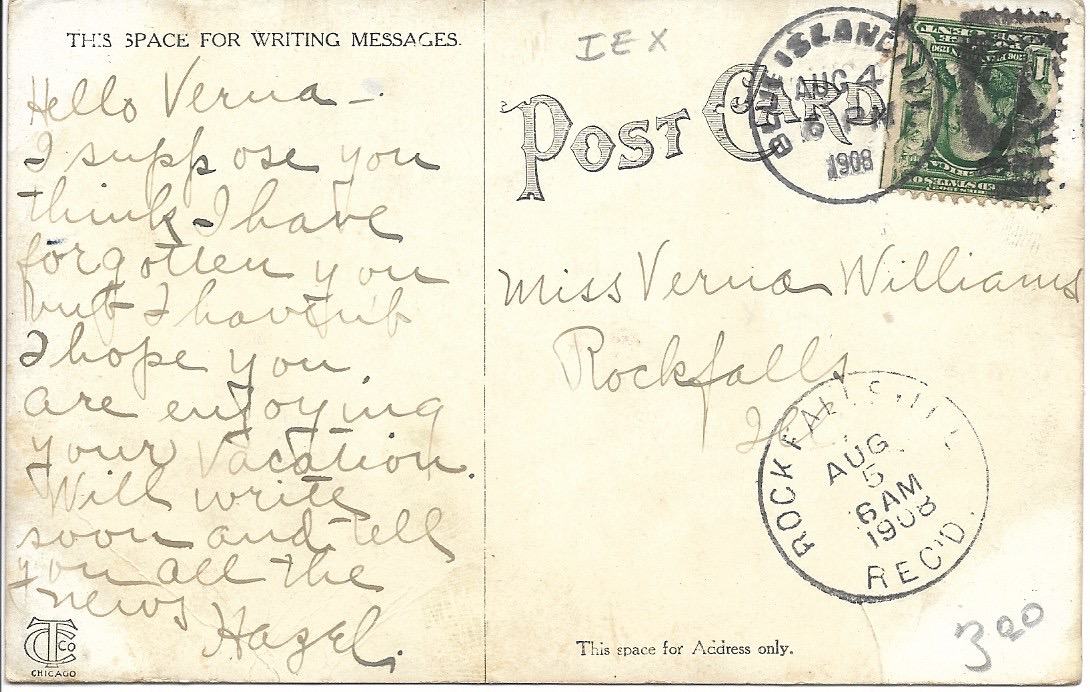 THIS SPACE FOR WRITING MESSAGES.
Hello Verna -
I suppose you
think I have
forgotten you
but I havent
I hope you
are enjoying
your vacation.
Will write
soon and tell
you all the
news
Hazel.
TC Co
CHICAGO
IEX
POST CARD
BLUE ISLAND
AUG 4
6 PM
1908
Miss Verna Williams
Rockfalls
Ill.
ROCK FALLS, ILL.
AUG.
5
6 AM
1908
REC'D.
This space for Address only.
300